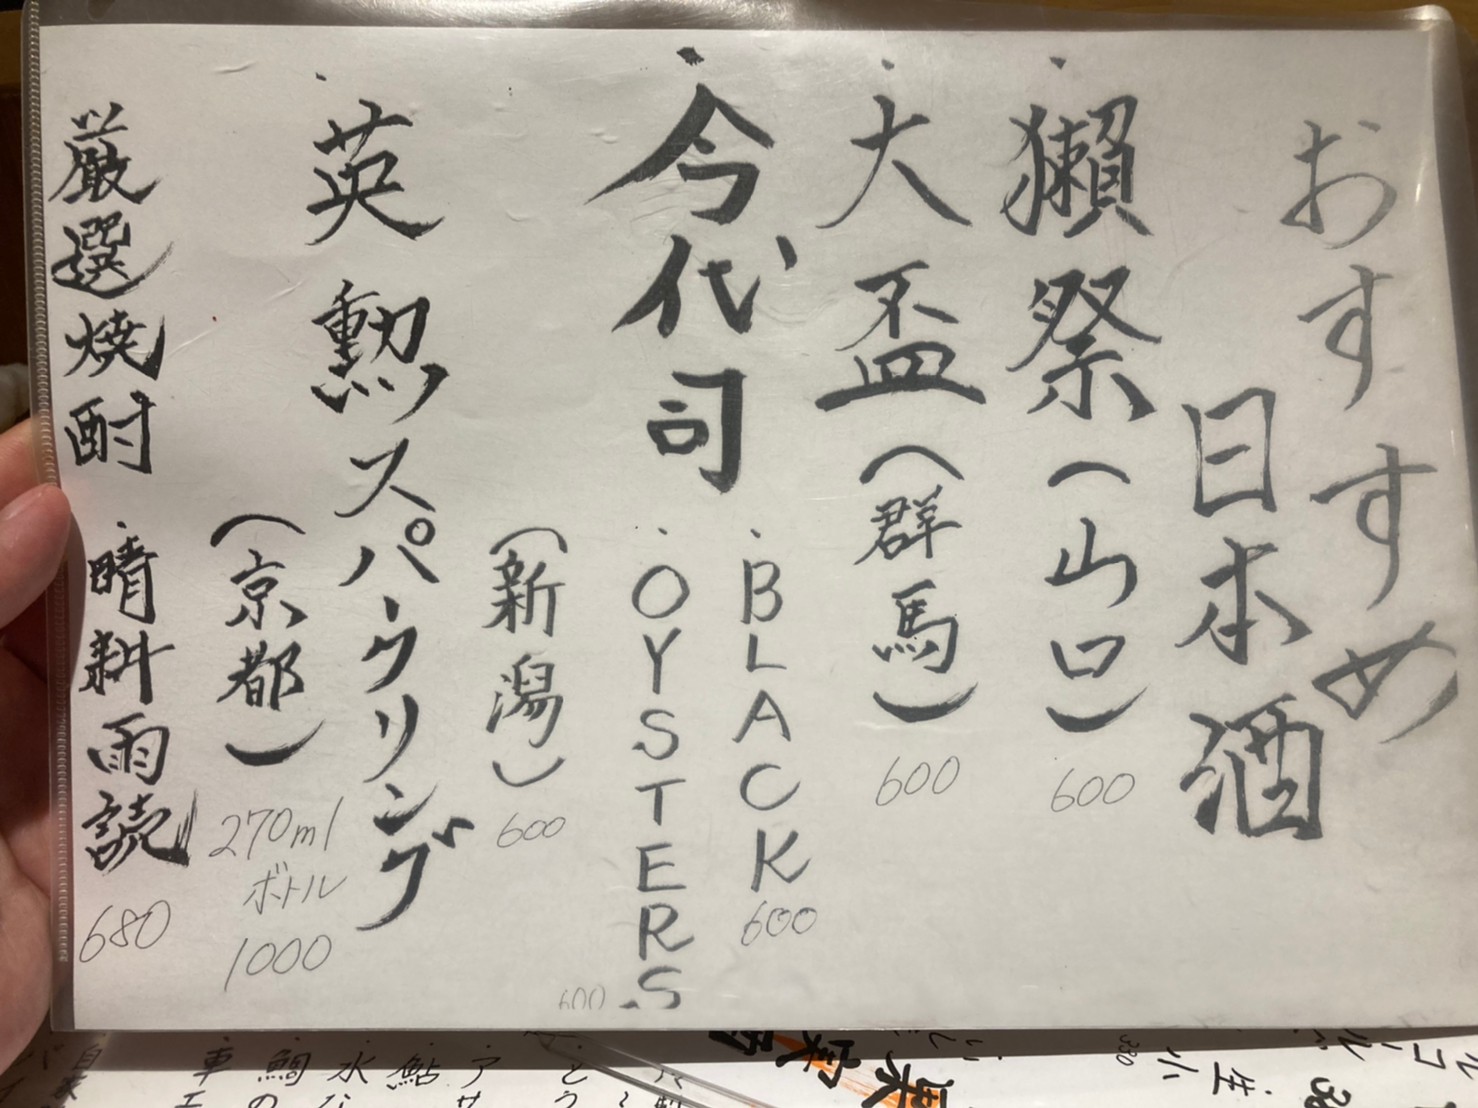 おすすめ
日本酒
・獺祭(山口)
600
・大盃(群馬)
600
・今代司
・BLACK
600
・OYSTERS
600
(新潟)
600
・英勲スパークリング
(京都)
270ml
ボトル
1000
厳選焼酎
・晴耕雨読
680
生小
330
・アサ
・鮎
・水な
・鯛の
・車エ
自家